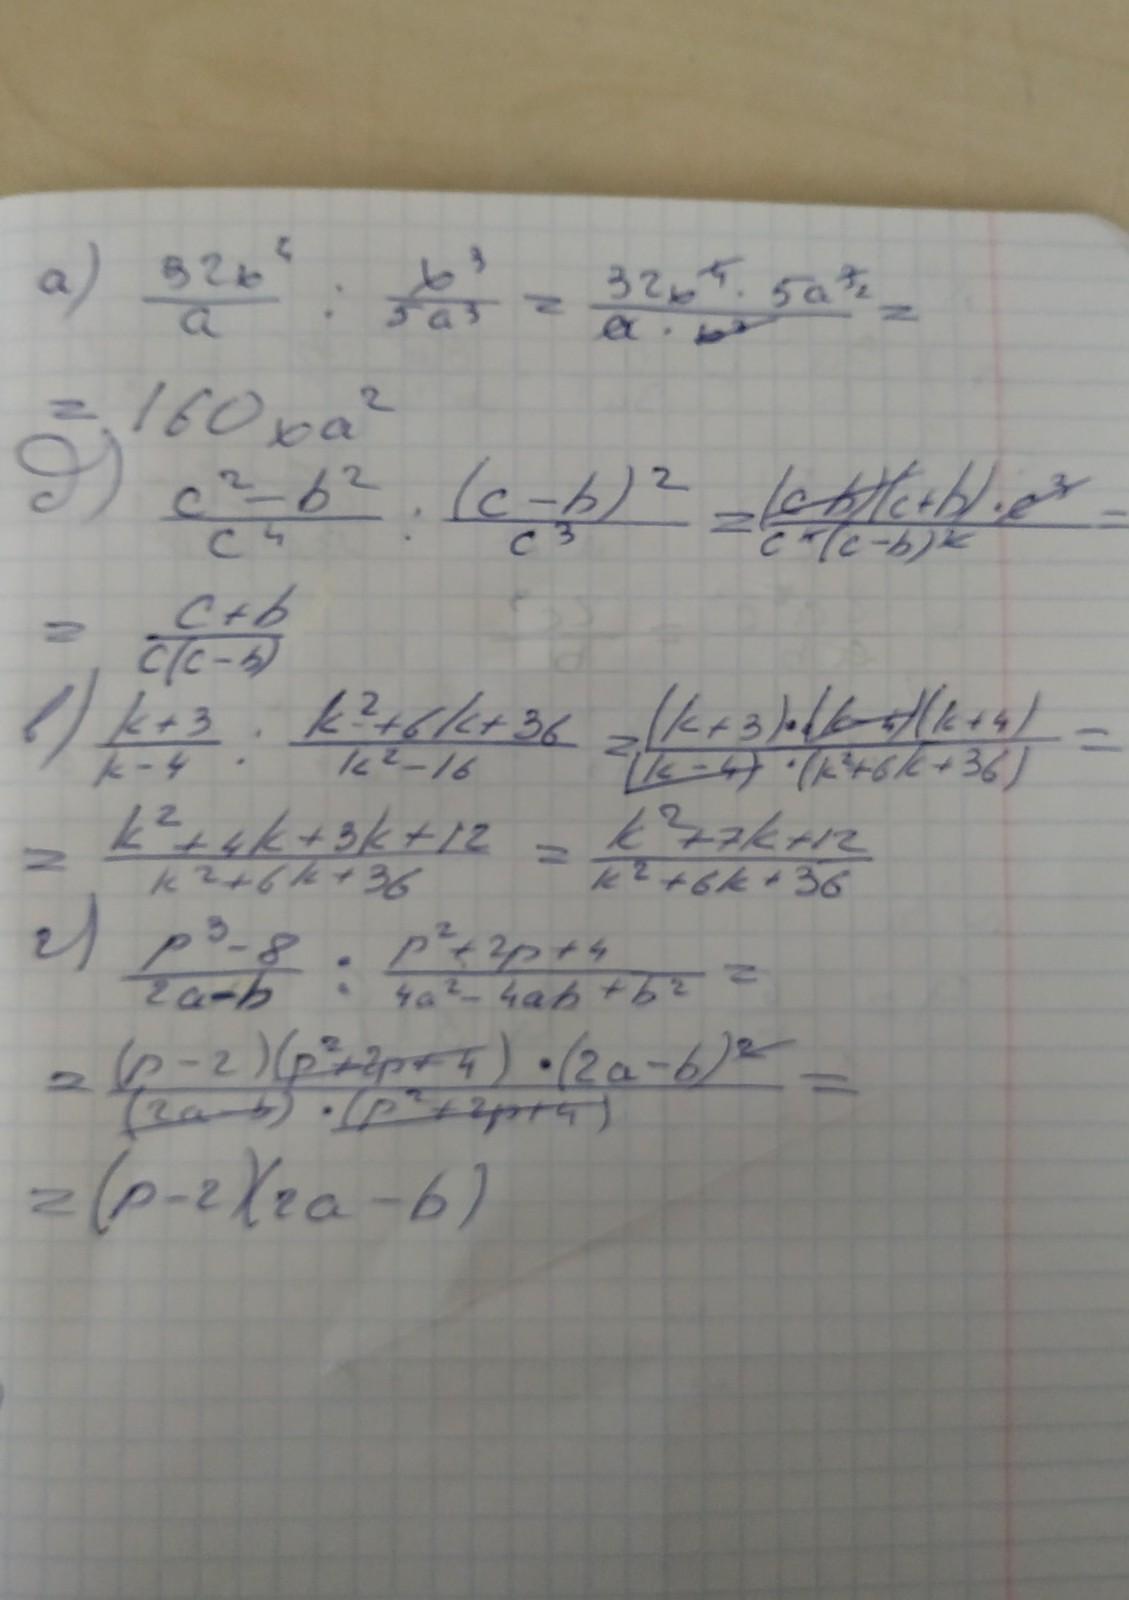 а) 32b⁴/a : b³/5a³ = 32b⁴ · 5a³²/a · b³ =
= 160ba²
д) c² - b²/c⁴ : (c - b)²/c³ = (c-b)(c+b) · c³/c⁴(c-b)² =
= c+b/c(c-b)
в) k+3/k-4 : k²+6k+36/k²-16 = (k+3)·(k-4)(k+4)/(k-4)·(k²+6k+36) =
= k²+4k+3k+12/k²+6k+36 = k²+7k+12/k²+6k+36
г) p³-8/2a-b : p²+2p+4/4a²-4ab+b² =
= (p-2)(p²+2p+4)·(2a-b)²/(2a-b)·(p²+2p+4) =
= (p-2)(2a-b)